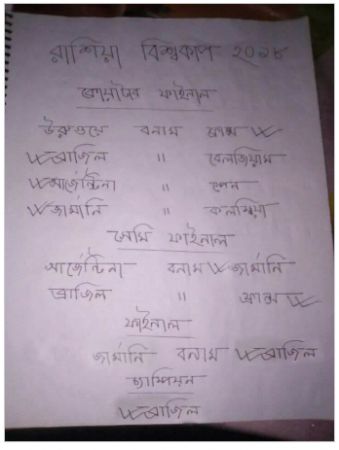 রাশিয়া বিশ্বকাপ ২০১৮
কোয়াটার ফাইনাল
উরুগুয়ে বনাম ফ্রান্স W
W ব্রাজিল " বেলজিয়াম
W আর্জেন্টিনা " স্পেন
W জার্মানি " কলম্বিয়া
সেমি ফাইনাল
আর্জেন্টিনা বনাম W জার্মানি
ব্রাজিল " ফ্রান্স W
ফাইনাল
জার্মানি বনাম W ব্রাজিল
চ্যাম্পিয়ন
W ব্রাজিল